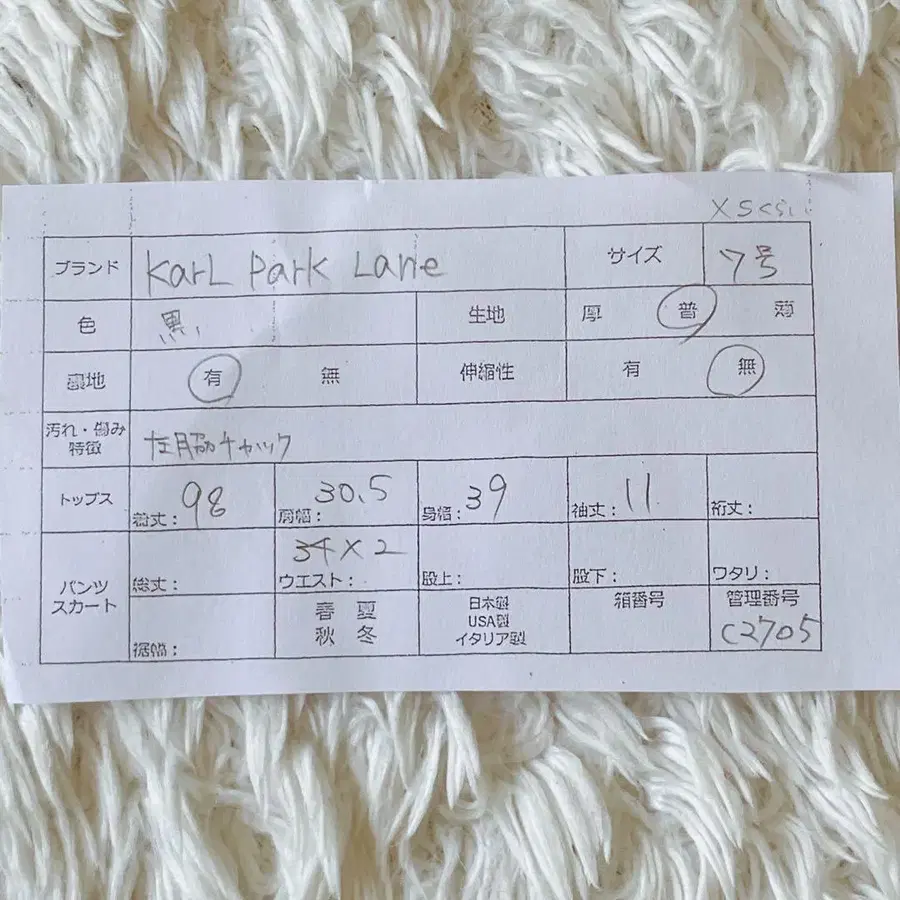 XSくらい
ブランド KarL Park Lane サイズ 7号
色 黒 生地 厚 普 薄
裏地 有 無 伸縮性 有 無
汚れ・傷み
特徴 左脇チャック
トップス 着丈: 98 肩幅: 30.5 身幅: 39 袖丈: 11 裄丈:
パンツ
スカート 総丈: ウエスト: 34×2 股上: 股下: ワタリ:
裾幅: 春 夏
秋 冬 日本製
USA製
イタリア製 箱番号 管理番号
C2705